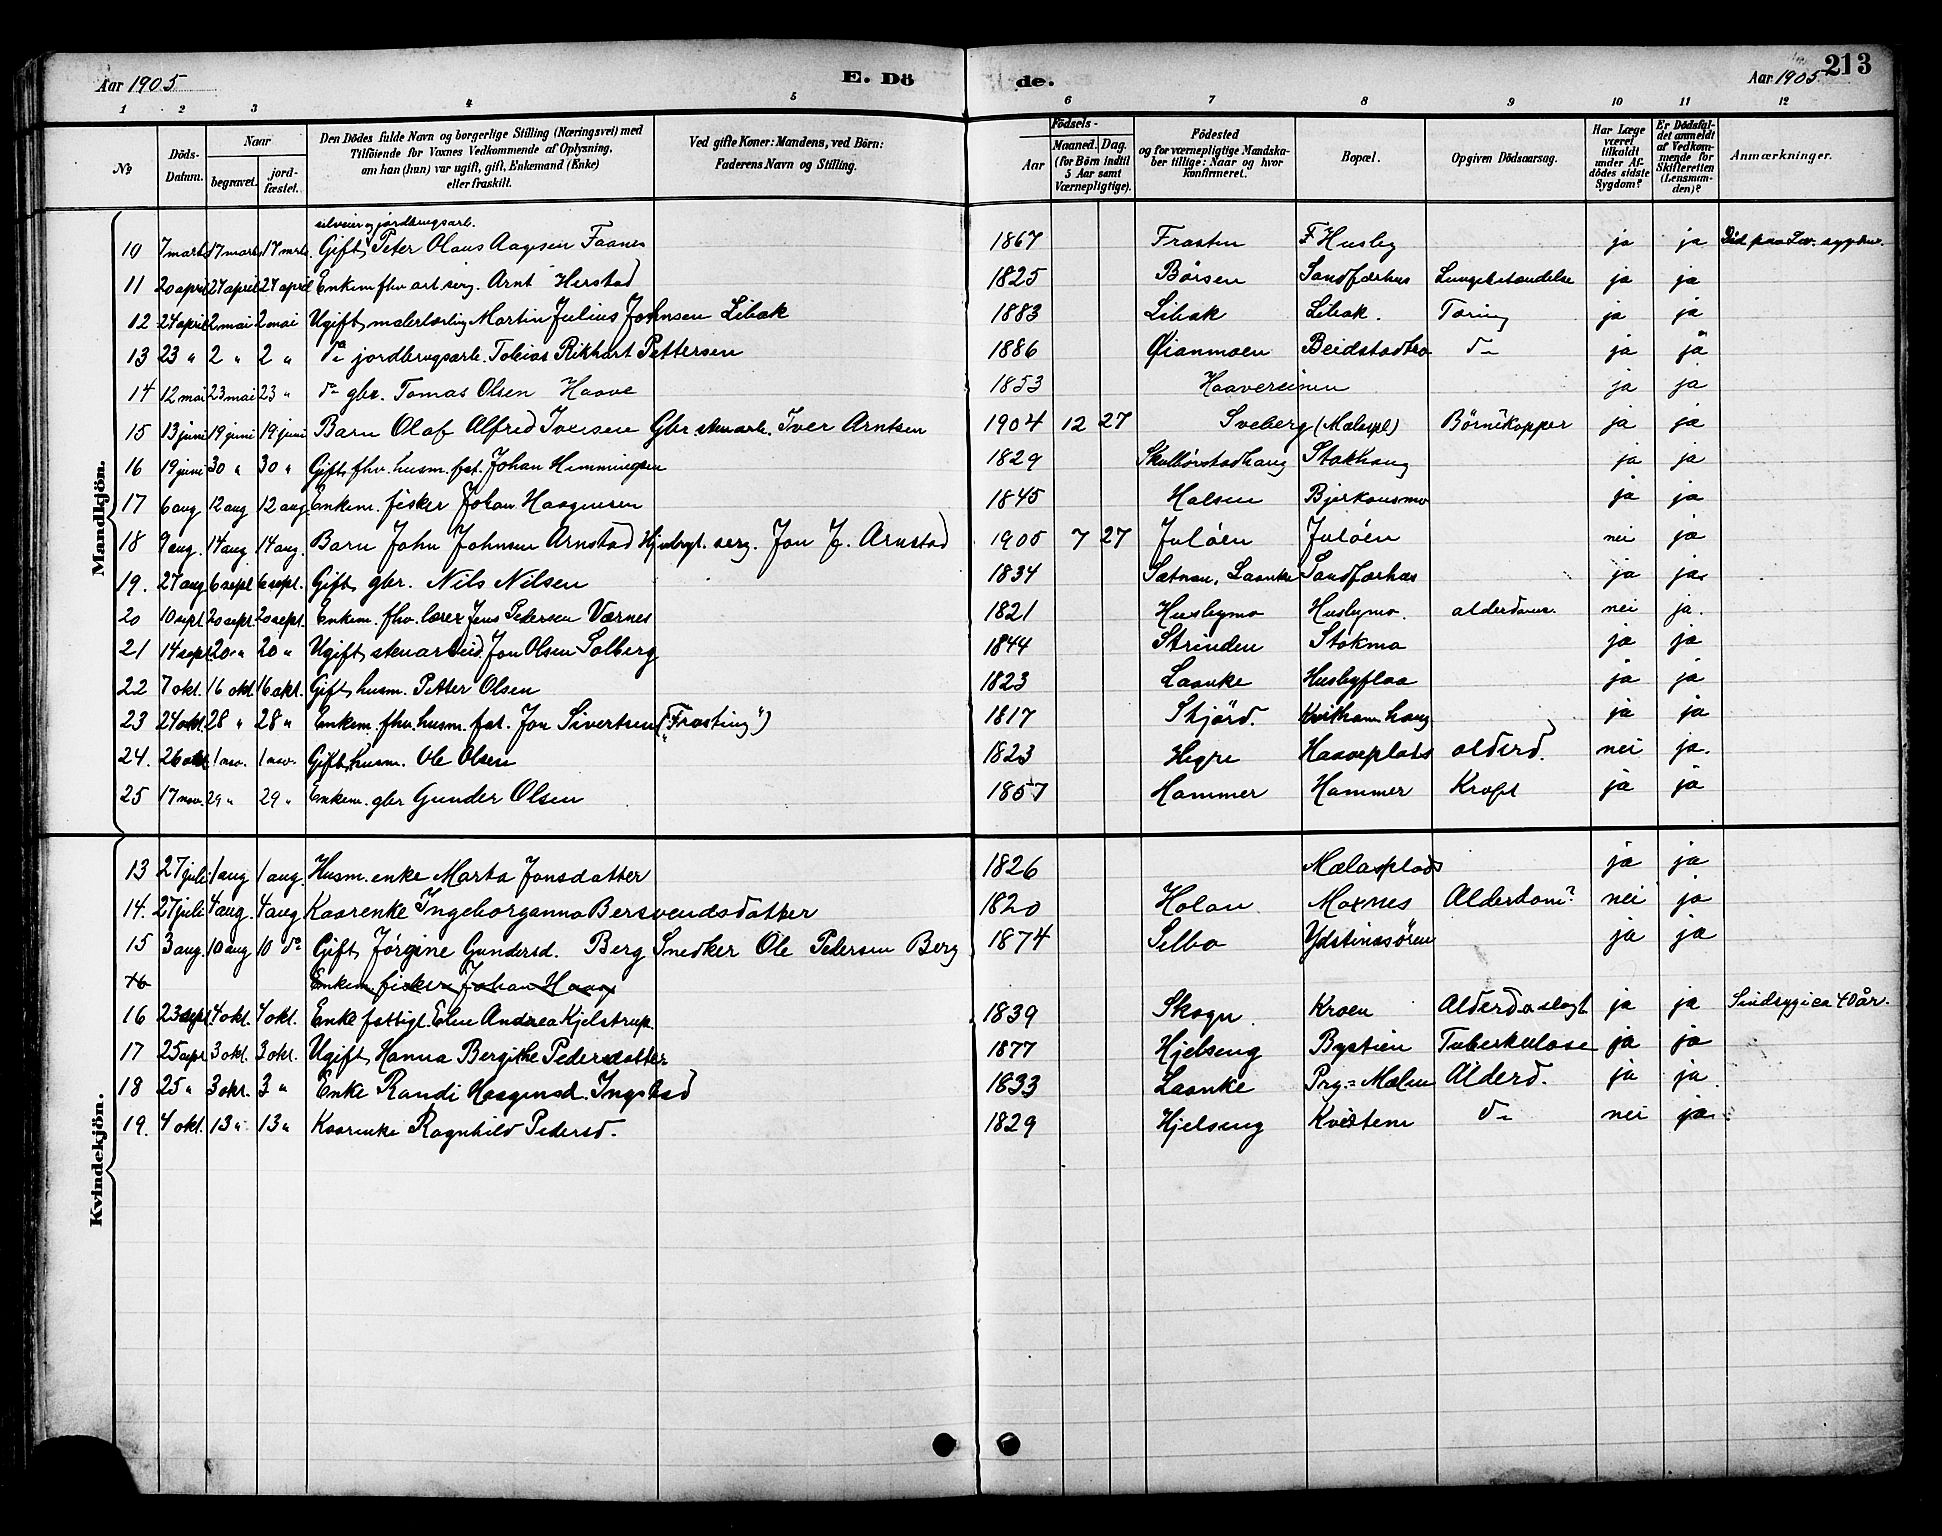 Aar 1905 E. Dö de. Aar 1905 213
1 2 3 4 5 6 7 8 9 10 11 12
№ Döds-Datum. Naar begravet. jordfæstet. Den Dödes fulde Navn og borgerlige Stilling (Næringsvei) med Tilföiende for Voxnes Vedkommende af Oplysning, om han (hun) var ugift, gift, Enkemand (Enke) eller fraskilt. Ved gifte Koner: Mandens, ved Börn: Faderens Navn og Stilling. Födsels- Aar Maaned. Dag. (for Börn indtil 5 Aar samt Værnepligtige). Födested og for værnepligtige Mandskaber tillige: Naar og hvor konfirmeret. Bopæl. Opgiven Dödsaarsag. Har Læge været tilkaldt under Afdödes sidste Sygdom? Er Dödsfaldet anmeldt af Vedkommende for Skifteretten (Lensmanden)? Anmærkninger.
Mandkjön.
selveier og jordbrugsarb.
10 7 mart 17 mart 17 mrt. Gift, Peter Olaus Aagesen Faanes 1867 Frosten F Husby ja ja Död paa sygehus.
11 20 april 27 april 27 april Enkem. fhv. art. serg. Arnt Herstad 1825 Börsen Sandfærhus Lungebetændelse ja ja
12 24 april 2 mai 2 mai Ugift, malerlærling Martin Julius Johnsen Libak 1883 Libak Libak. Tæring ja ja
13 23 " 2 " 2 " do jordbrugsarb. Tobias Rikhart Pettersen 1886 Øianmoen Beidstadtrø do ja ja
14 12 mai 23 mai 23 " do gbr. Tomas Olsen Haave 1853 Haavereinen ja ja
15 13 juni 19 juni 19 juni Barn Olaf Alfred Iversen Gbr. stenarb. Iver Arntsen 1904 12 27 Sveberg (Malvpl) Börnekopper ja ja
16 19 juni 30 " 30 " Gift, fhv. husm. fat. Johan Hemmingsen 1829 Skulbörstadhaug Stokhaug ja ja
17 6 aug 12 aug 12 aug. Enkem. fisker Johan Haagensen 1845 Halsen Bjerkansmo ja ja
18 9 aug. 14 aug 14 aug. Barn John Johnsen Arnstad Hjulbryt. serg. Jon J. Arnstad 1905 7 27 Juløen Juløen nei ja
19. 27 aug 6 sept 6 sept. Gift, gbr. Nils Nilsen 1834 Sætnan, Laanke Sandfærhus ja ja
20 10 sept. 20 sept. 20 sept. Enkem. fhv. lærer Jens Pedersen Værnes 1821 Husbymo Husbymo. alderdoms. nei ja.
21 14 sept 20 " 20 " Ugift, stenarbeid Jon Olsen Solberg 1844 Strinden Stokmo ja ja
22 7 okt. 16 okt. 16 okt. Gift, husm. Petter Olsen 1823 Laanke Husbyflaa ja ja
23 24 okt. 28 " 28 " Enkem. fhv. husm. fat. Jon Sivertsen ("Frosting") 1817 Stjörd. Kvitham haug ja ja
24. 26 okt. 1 nov. 1 nov. Gift, husm. Ole Olsen 1823 Hegre Haaveplads alderd. nei ja.
25 17 nov. 29 " 29 " Enkem. gbr Gunder Olsen 1857 Hammer Hammer Kræft ja ja
Kvindekjön.
13 27 juli 1 aug 1 aug. Husm. enke Marta Jonsdatter 1826 Mælasplads ja ja
14. 27 juli 4 aug. 4 aug Kaarenke Ingeborganna Bersvendsdatter 1820 Holan Moxnes Alderdom? nei ja
15 3 aug. 10 aug 10 do Gift, Jörgine Gundersd. Berg Snedker Ole Pedersen Berg 1874 Selbo Ydstinesören ja ja
16 Enkem. fisker Johan Haag
16 23 sept 4 okt. 4 okt. Enke fattigl. Elen Andrea Kjelstrup. 1839 Skogn Kroen Alderd. o slagt ja ja Sindsyg i ca 40 år.
17 25 sept 3 okt. 3 okt. Ugift, Hanna Bergithe Pedersdatter 1877 Hjelseng Bystien Tuberkulose ja ja
18 25 " 3 okt. 3 " Enke Randi Haagensd. Ingstad 1833 Laanke Prg. Mælen Alderd. ja ja
19. 4 okt. 13 " 13 " Kaarenke Ragnhild Pedersd. 1829 Hjelseng Kvistene do nei ja